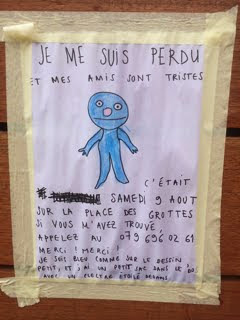 JE ME SUIS PERDU
ET MES AMIS SONT TRISTES
C'ÉTAIT
SAMEDI 9 AOUT
SUR LA PLACE DES GROTTES
SI VOUS M'AVEZ TROUVÉ,
APPELEZ AU 079 696 02 61
MERCI! MERCI!
JE SUIS BLEU COMME SUR LE DESSIN
PETIT, ET J'AI UN PETIT SAC DANS LE DOS
AVEC UN PLECTRE ÉTOILÉ DEDANS